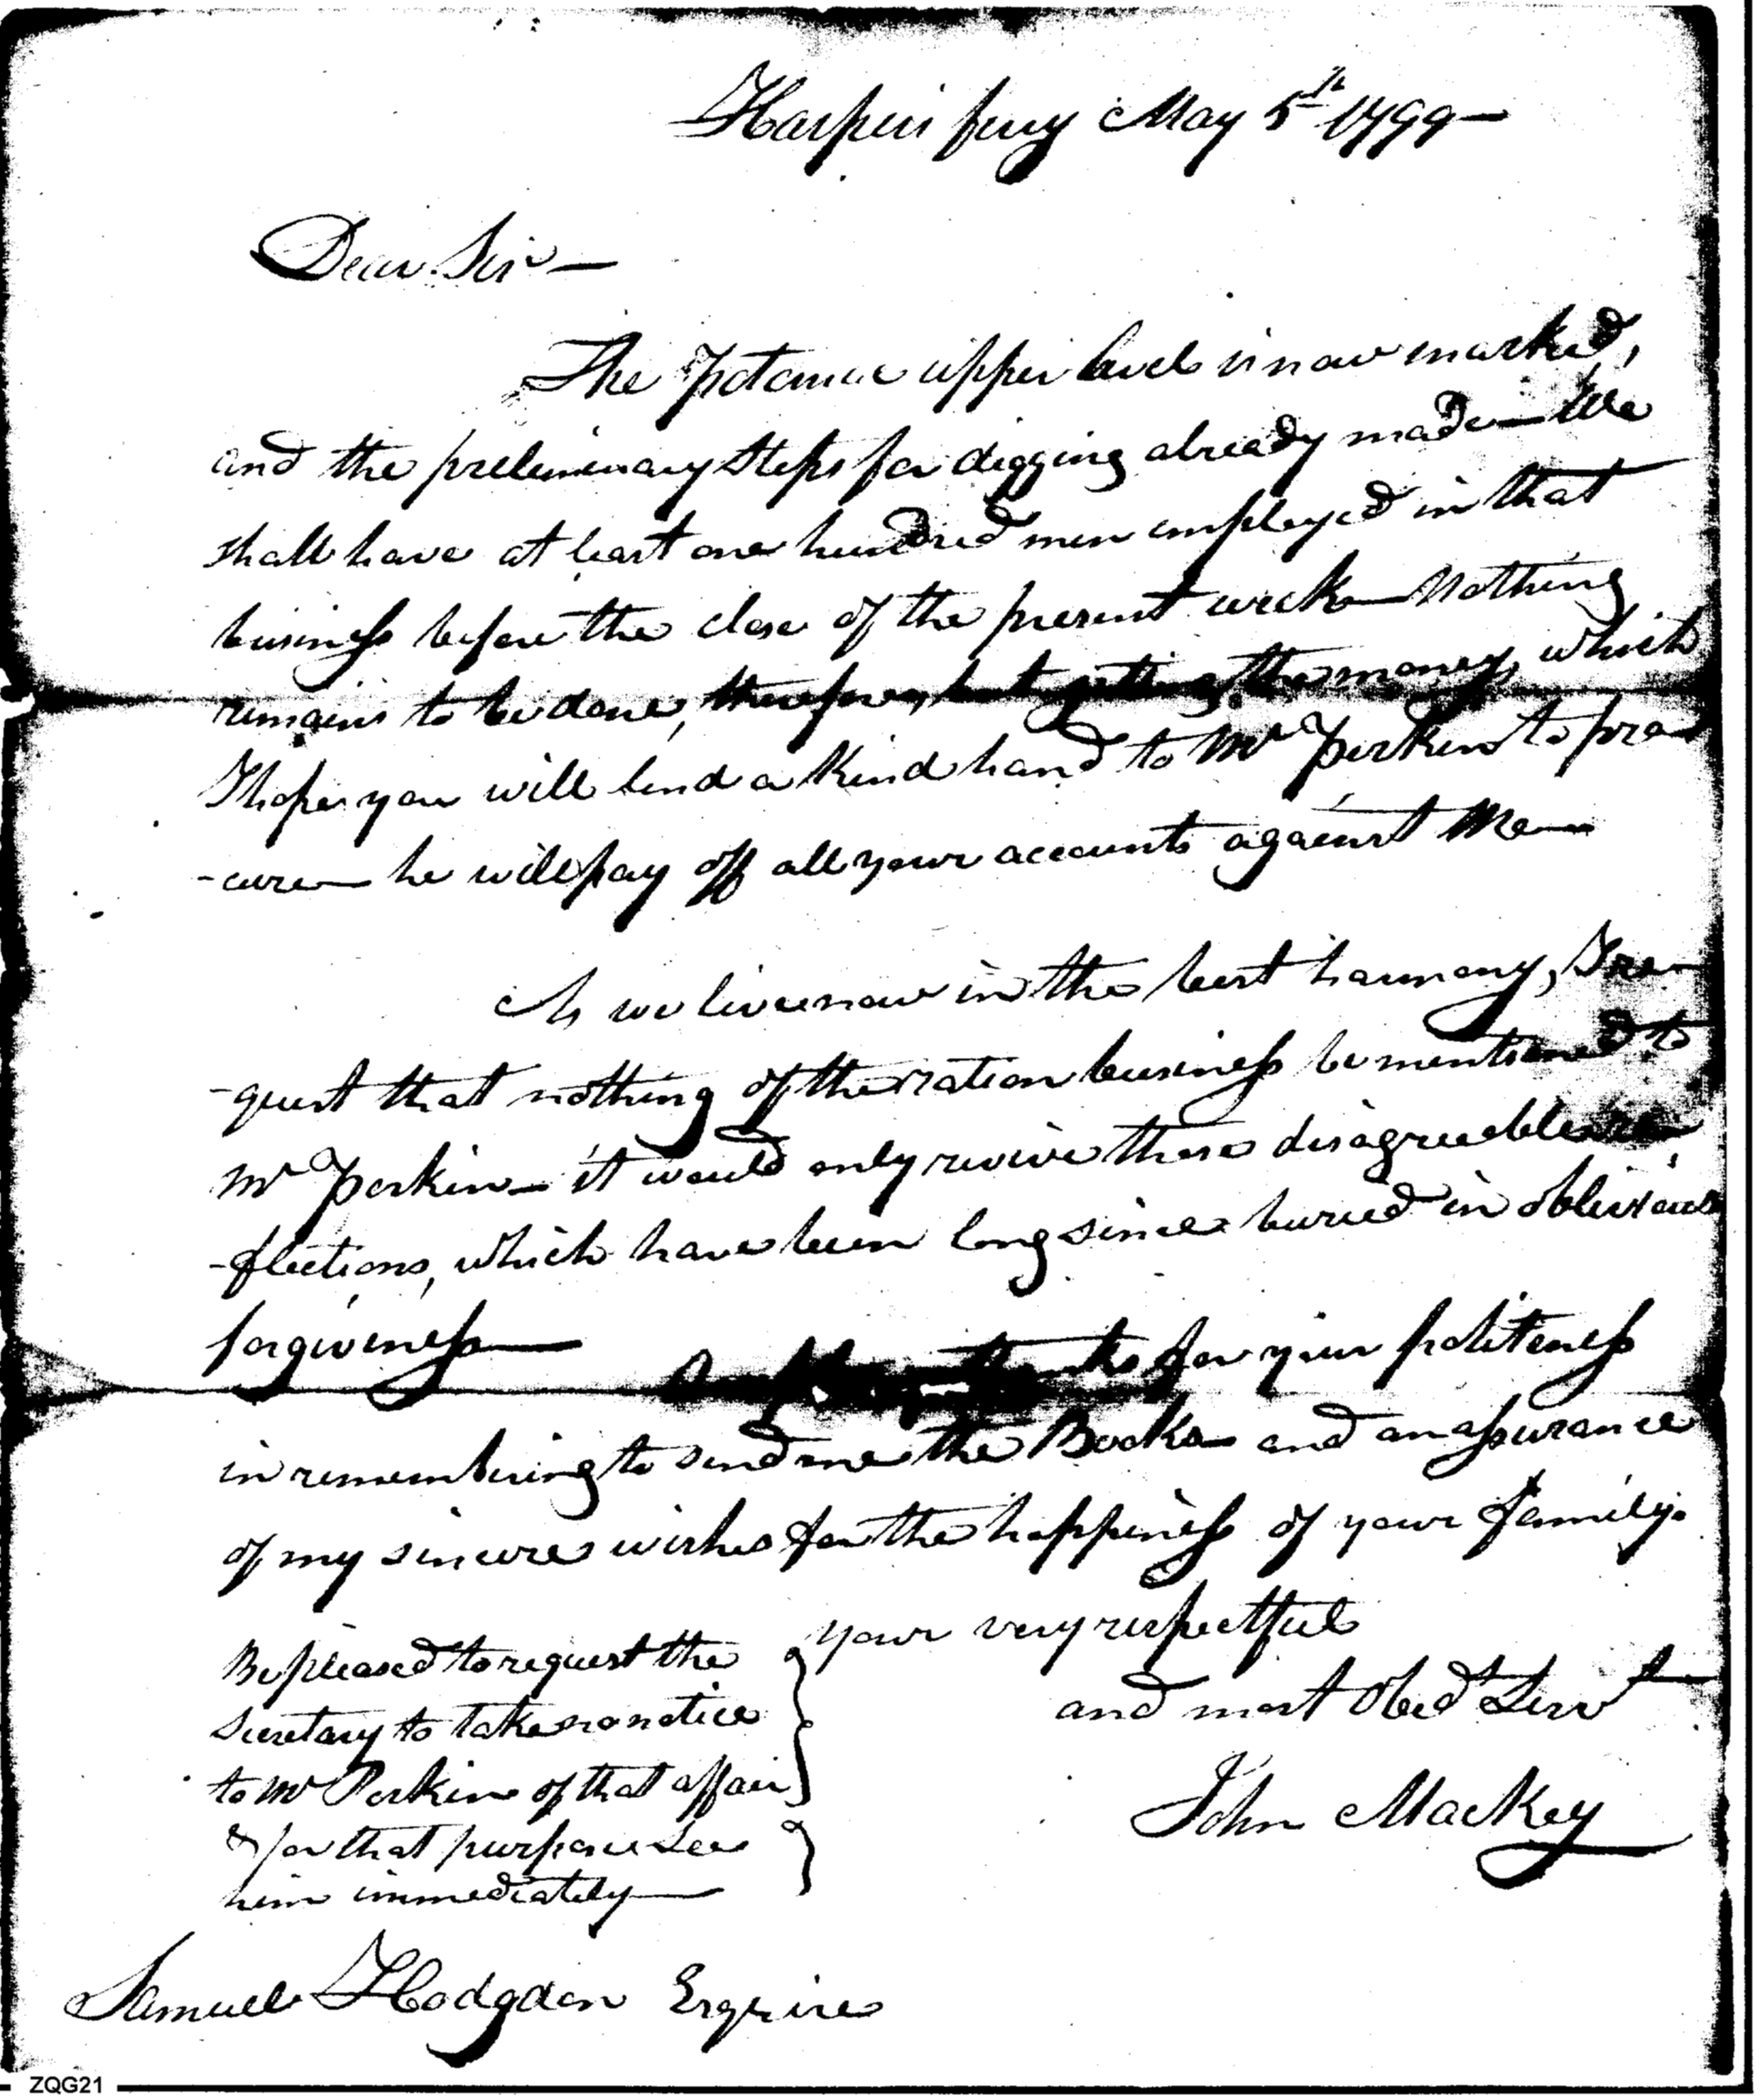 Harpers ferry May 5th 1799—
Dear Sir—
The Potomac upper level is now marked,
and the preliminary steps for digging already made— We
shall have at least one hundred men employed in that
business before the close of the present week— Nothing
remains to be done, therefore, but getting the money, which
I hope you will lend a kind hand to Mr Perkin to pro
-cure— he will pay off all your accounts against me—
As we live now in the best harmony, I re-
-quest that nothing of the ration business be mentioned to
Mr Perkin— it would only revive those disagreeable re-
-flections, which have been long since buried in
forgiveness—
thanks for your politeness
in remembering to send me the Books— and an assurance
of my sincere wishes for the happiness of your family.
your very respectful
and most Obed Servt
John Mackey
Be pleased to request the
Secretary to take no notice
to Mr Perkin of that affair
& for that purpose see
him immediately—
Samuel Hodgdon Esquire
ZQG21